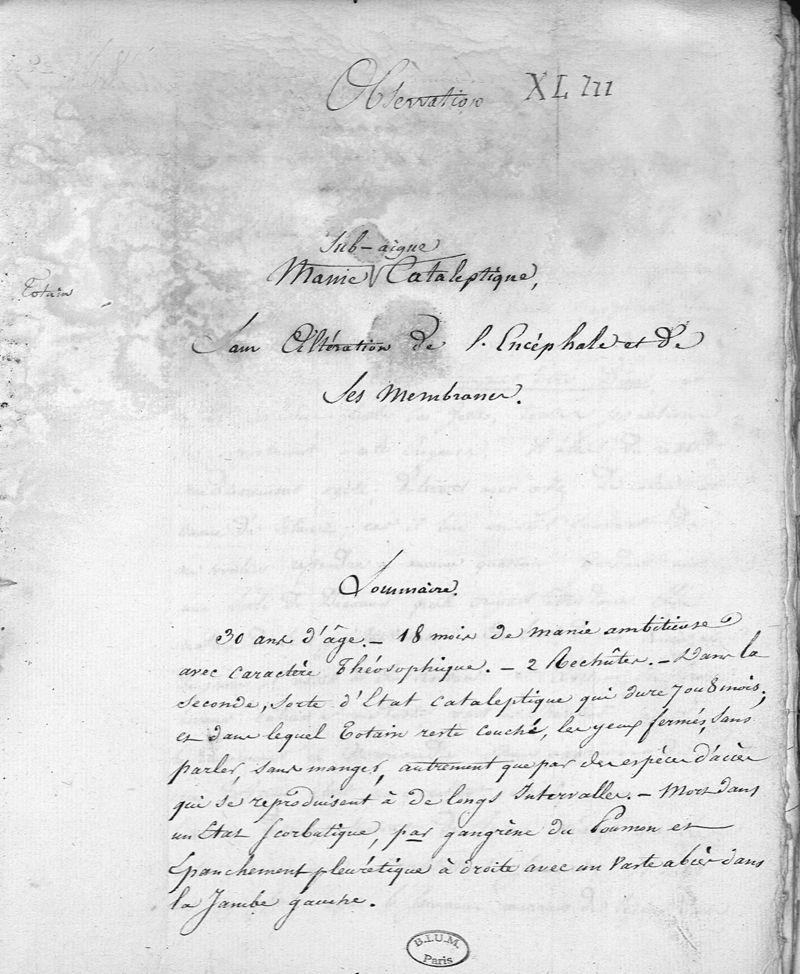 Observation XLIII
Sub-aigue
Manie Cataleptique,
Totain
Sans Altération de l'Encéphale et de
Ses Membranes.
Sommaire.
30 ans d'âge. — 18 mois de manie ambitieuse
avec caractère Théosophique. — 2 Rechûtes. — Dans la
seconde, sorte d'Etat cataleptique qui dure 7 ou 8 mois,
et dans lequel Totain reste couché, les yeux fermés, sans
parler, sans manger, autrement que par des espèces d'accès
qui se reproduisent à de longs Intervalles. — Mort dans
un Etat scorbutique, par gangrène du Poumon et
Epanchement pleurétique à droite avec un vaste abcès dans
la Jambe gauche.
B.I.U.M.
Paris